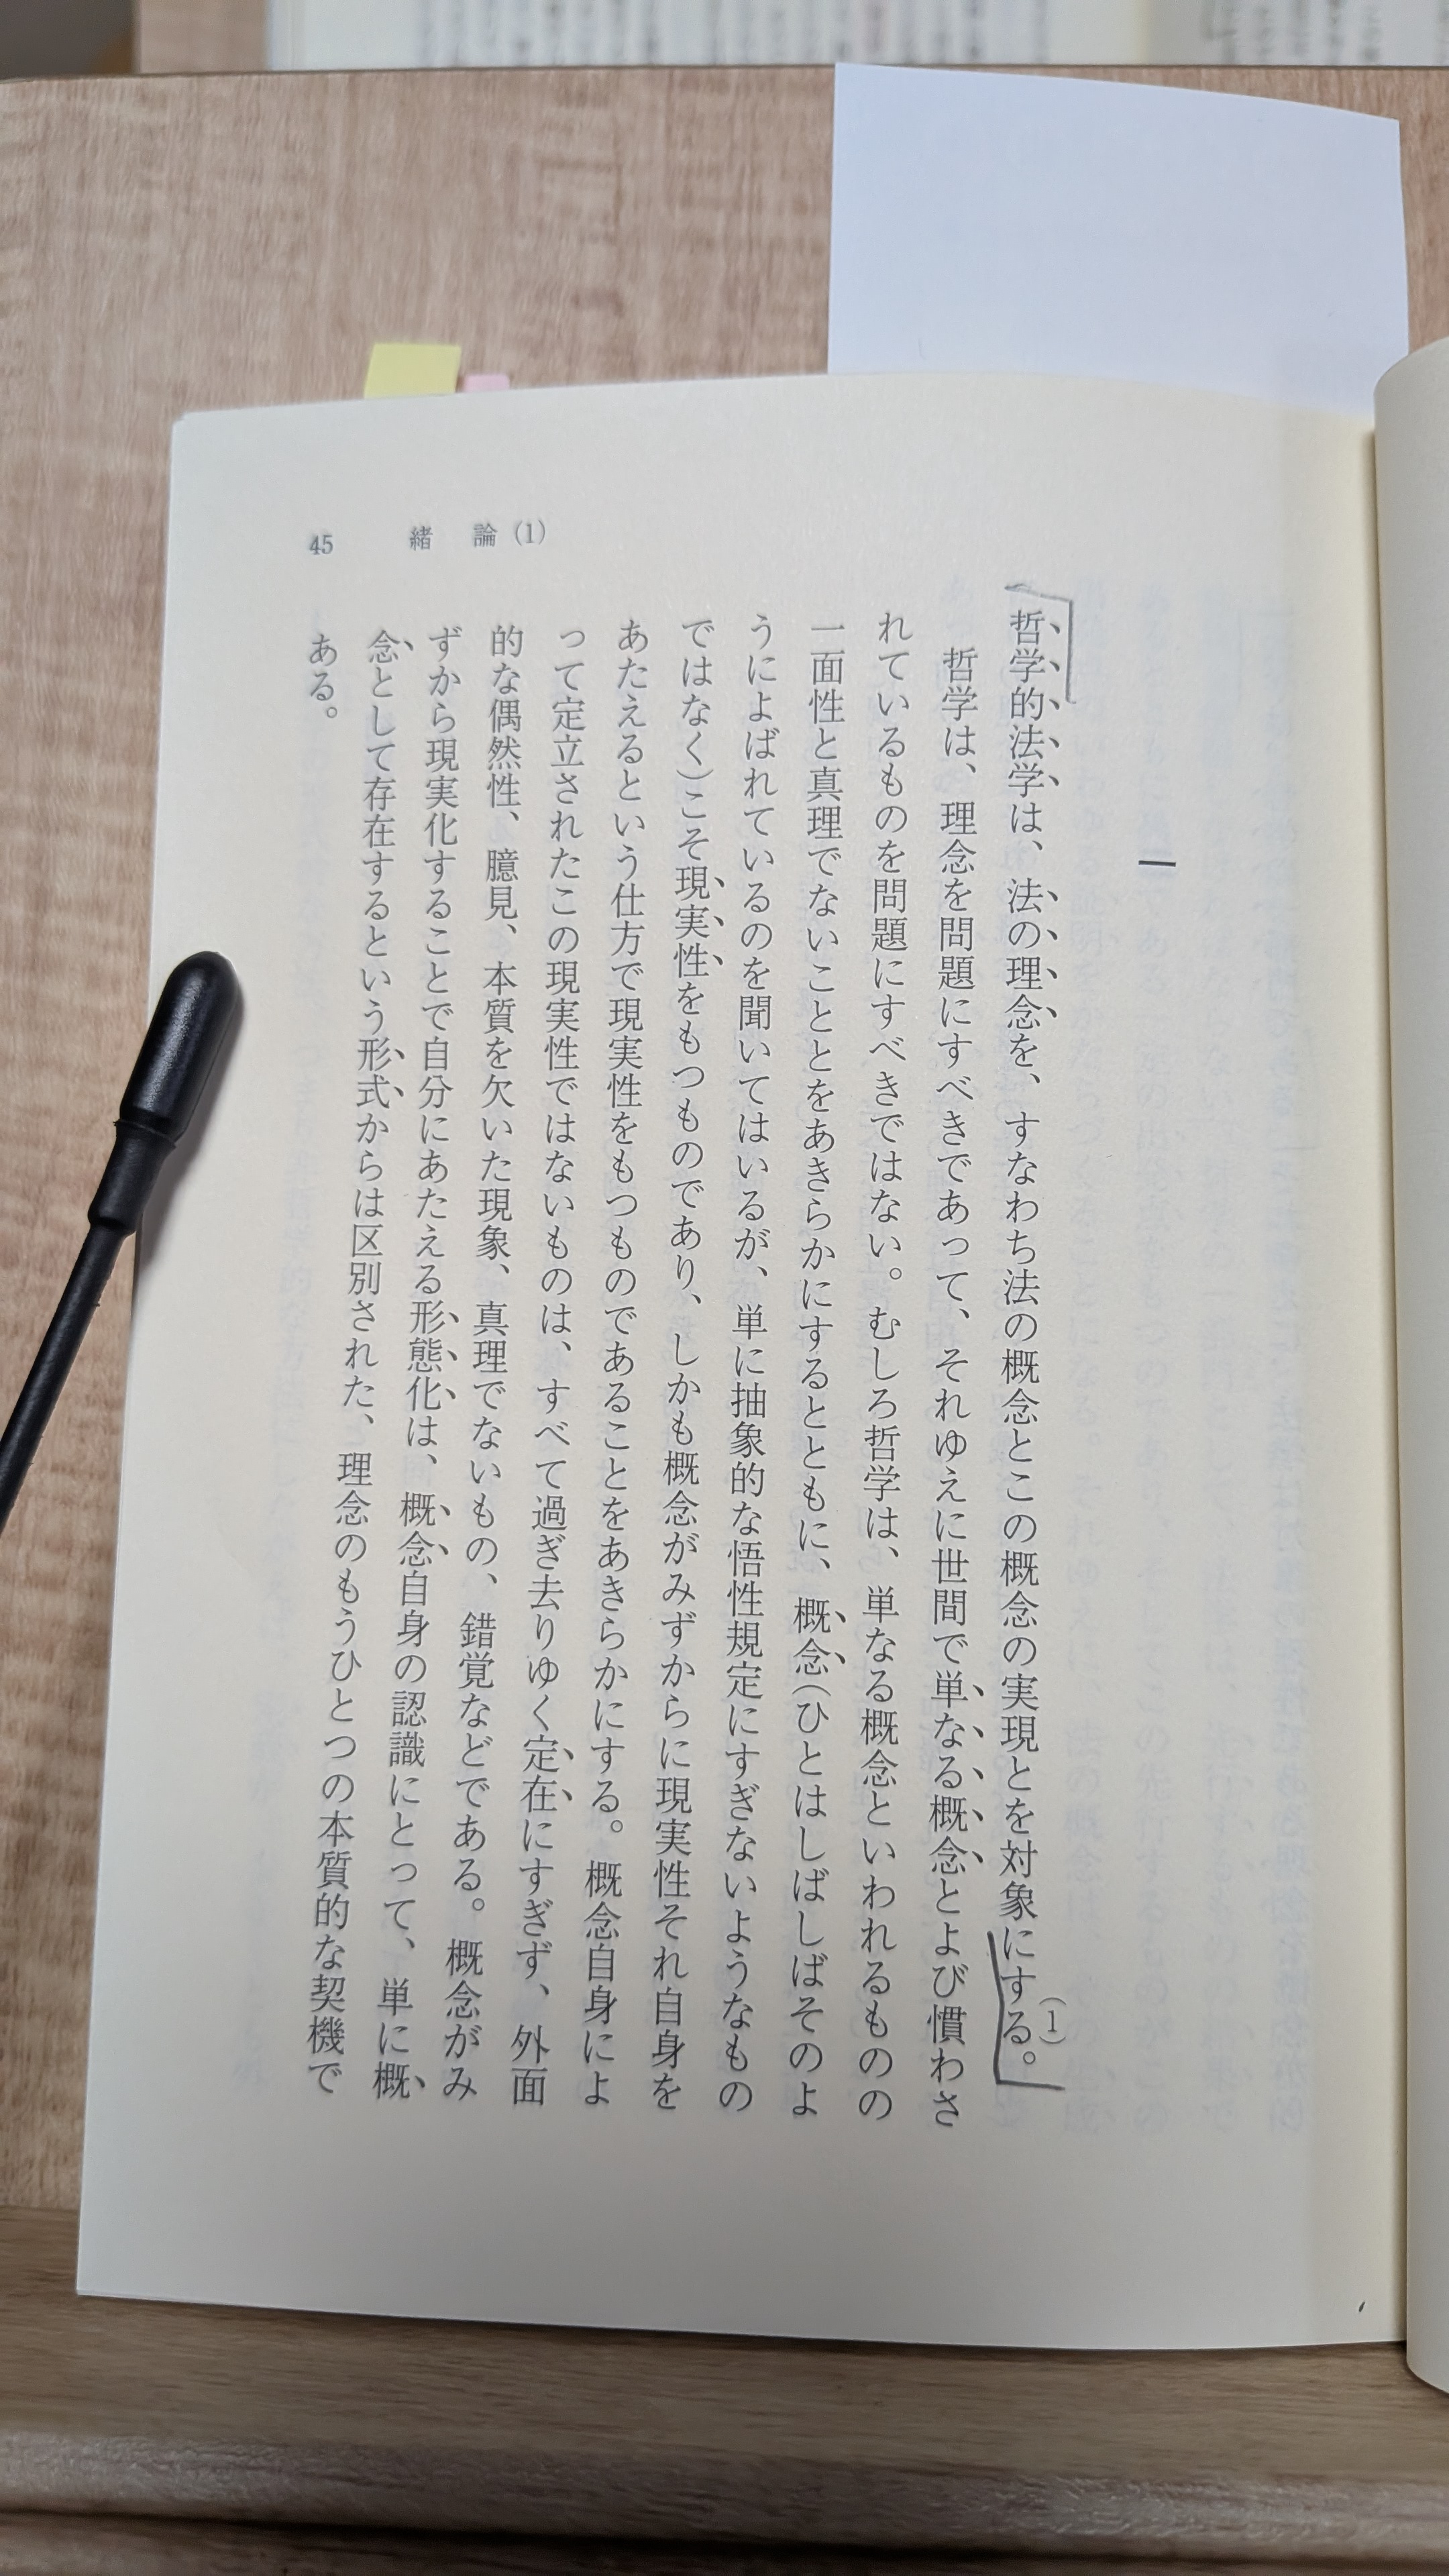 45 緒 論(1)
一
哲学的法学は、法の理念を、すなわち法の概念とこの概念の実現とを対象にする。(1)
哲学は、理念を問題にすべきであって、それゆえに世間で単なる概念とよび慣わさ
れているものを問題にすべきではない。むしろ哲学は、単なる概念といわれるものの
一面性と真理でないこととをあきらかにするとともに、概念(ひとはしばしばそのよ
うによばれているのを聞いてはいるが、単に抽象的な悟性規定にすぎないようなもの
ではなく)こそ現実性をもつものであり、しかも概念がみずからに現実性それ自身を
あたえるという仕方で現実性をもつものであることをあきらかにする。概念自身によ
って定立されたこの現実性ではないものは、すべて過ぎ去りゆく定在にすぎず、外面
的な偶然性、臆見、本質を欠いた現象、真理でないもの、錯覚などである。概念がみ
ずから現実化することで自分にあたえる形態化は、概念自身の認識にとって、単に概
念として存在するという形式からは区別された、理念のもうひとつの本質的な契機で
ある。